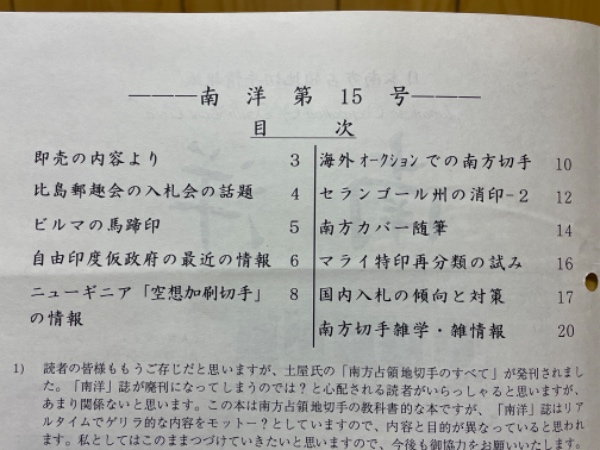 ———南 洋 第 15 号———
目 次
即売の内容より 3
比島郵趣会の入札会の話題 4
ビルマの馬蹄印 5
自由印度仮政府の最近の情報 6
ニューギニア「空想加刷切手」 8
の情報
海外オークションでの南方切手 10
セランゴール州の消印-2 12
南方カバー随筆 14
マライ特印再分類の試み 16
国内入札の傾向と対策 17
南方切手雑学・雑情報 20
1) 読者の皆様ももうご存じだと思いますが、土屋氏の「南方占領地切手のすべて」が発刊されまし
た。「南洋」誌が廃刊になってしまうのでは？と心配される読者がいらっしゃると思いますが、
あまり関係ないと思います。この本は南方占領地切手の教科書的な本ですが、「南洋」誌はリア
ルタイムでゲリラ的な内容をモットー？としていますので、内容と目的が異なっていると思われ
ます。私としてはこのままつづけていきたいと思いますので、今後も御協力をお願いいたします。